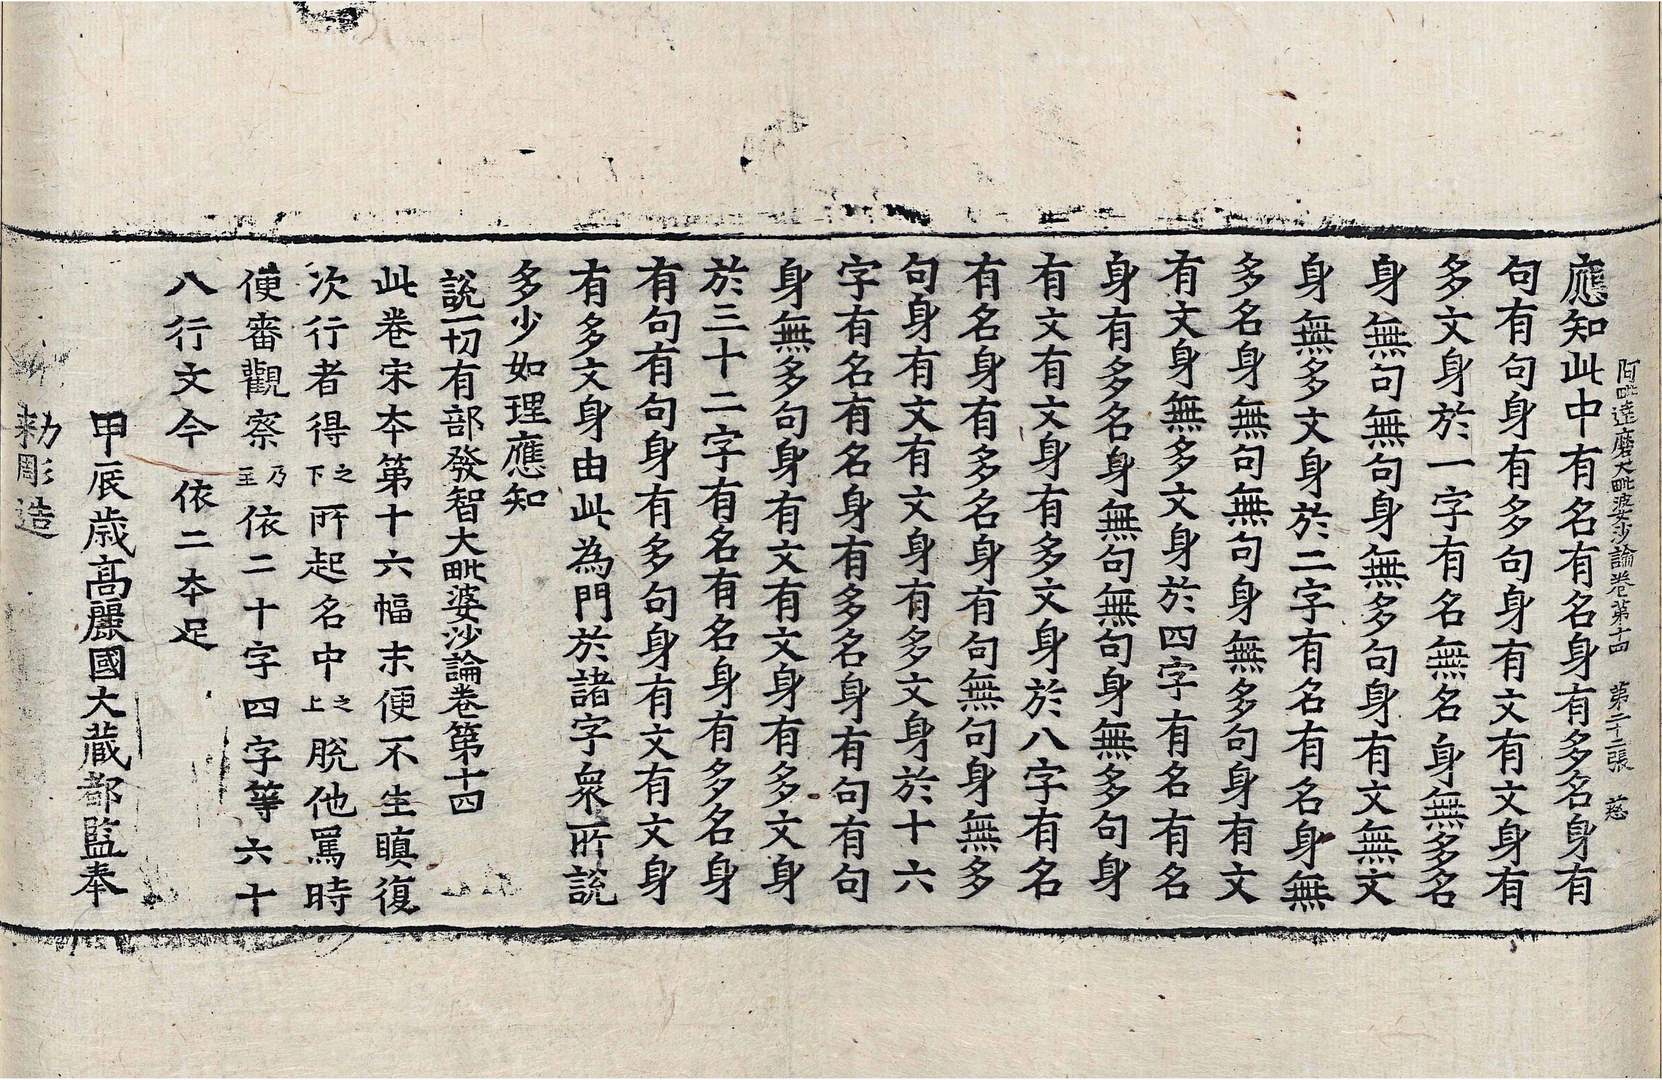 阿毗達磨大毗婆沙論卷第十四　第二十二張　慈
應知此中有名有名身有多名身有
句有句身有多句身有文有文身有
多文身於一字有名無名身無多名
身無句無句身無多句身有文無文
身無多文身於二字有名有名身無
多名身無句無句身無多句身有文
有文身無多文身於四字有名有名
身有多名身無句無句身無多句身
有文有文身有多文身於八字有名
有名身有多名身有句無句身無多
句身有文有文身有多文身於十六
字有名有名身有多名身有句有句
身無多句身有文有文身有多文身
於三十二字有名有名身有多名身
有句有句身有多句身有文有文身
有多文身由此為門於諸字眾所說
多少如理應知
說一切有部發智大毗婆沙論卷第十四
此卷宋本第十六幅末便不生瞋復
次行者得之下所起名中之上脫他罵時
便審觀察乃至依二十字四字等六十
八行文今依二本足
甲辰歲高麗國大藏都監奉
勑彫造